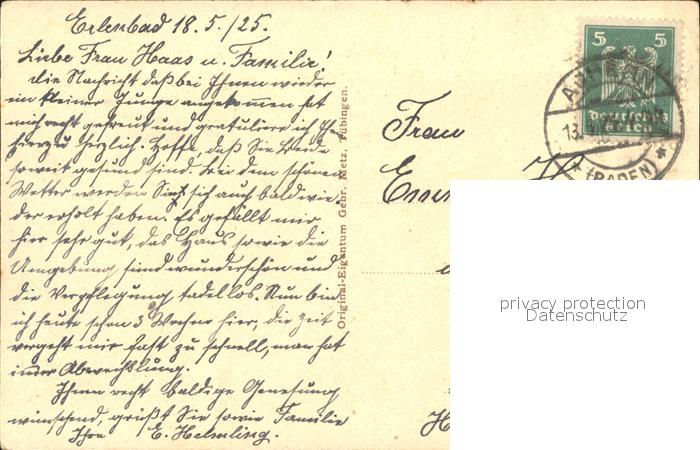 Erlenbad 18.5./25.
Liebe Frau Haas u. Familie!
Die Nachricht daß bei Ihnen wieder
ein kleiner Junge angekommen hat
mich recht gefreut und gratuliere ich Ihnen
hierzu herzlich. Hoffe, daß Sie beide
soweit gesund sind. Bei dem schönen
Wetter werden Sie sich auch bald wie-
der erholt haben. Es gefällt mir
hier sehr gut, das Haus sowie die
Umgebung sind wunderschön und
die Verpflegung tadellos. Nun bin
ich heute schon 3 Wochen hier, die Zeit
vergeht mir fast zu schnell, man hat
immer Abwechslung.
Ihnen recht baldige Genesung
wünschend, grüßt Sie sowie Familie
Ihre E. Helmling.
Original-Eigentum Gebr. Metz, Tübingen.
5 5
Deutsches
Reich
(BADEN)
Frau
H
privacy protection
Datenschutz